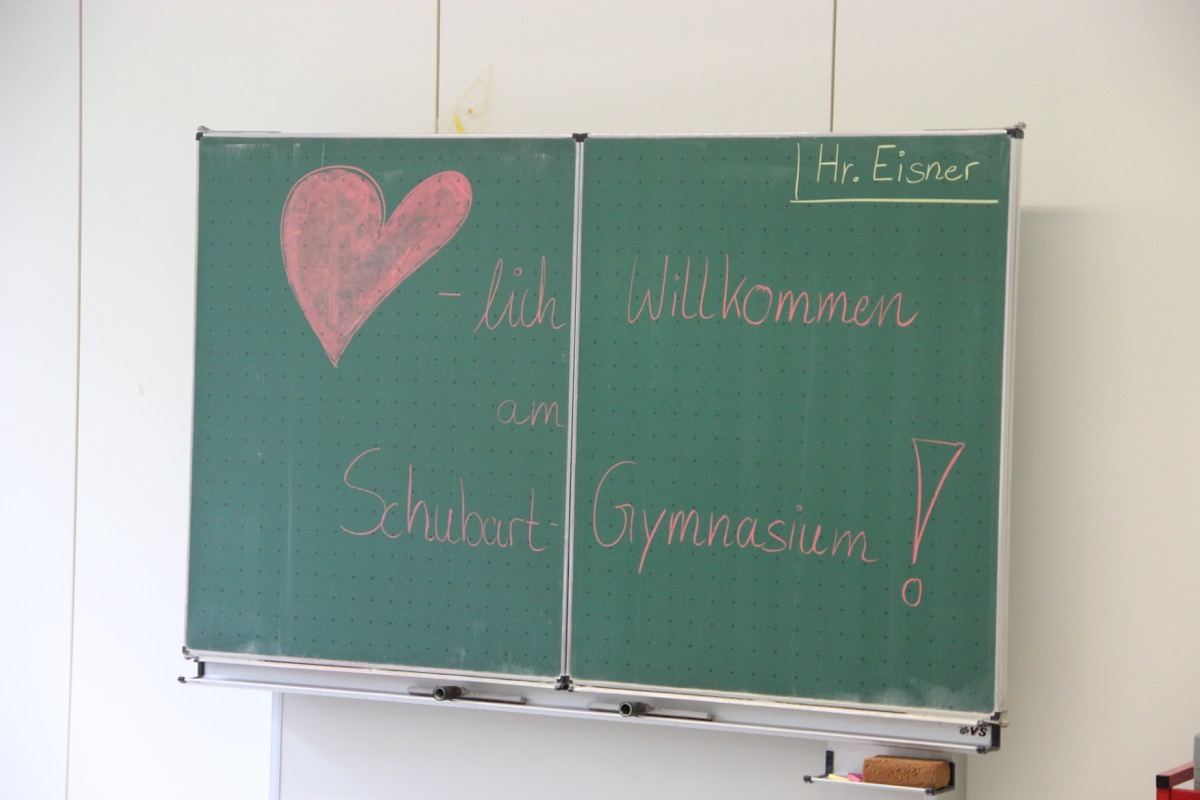 Hr. Eisner
-lich Willkommen
am
Schubart-Gymnasium!
VS